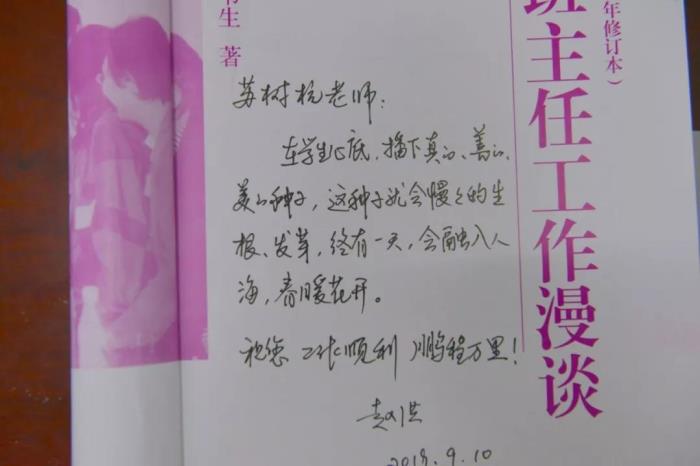 年修订本）
班主任工作漫谈
书生 著
苏树杭老师：
在学生心底，播下真的、善的、
美的种子，这种子就会慢々的生
根、发芽，终有一天，会融入人
海，春暖花开。
祝您 工作顺利 鹏程万里！
赵洪
2018.9.10